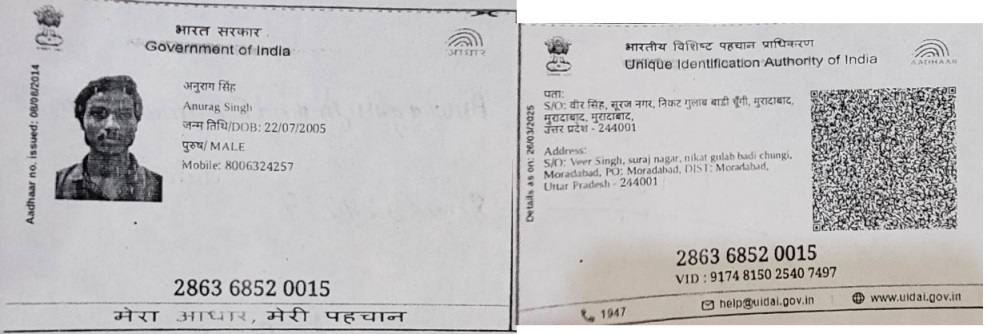 भारत सरकार
Government of India
आधार
Aadhaar no. issued: 08/08/2014
अनुराग सिंह
Anurag Singh
जन्म तिथि/DOB: 22/07/2005
पुरुष/ MALE
Mobile: 8006324257
2863 6852 0015
मेरा आधार, मेरी पहचान
भारतीय विशिष्ट पहचान प्राधिकरण
Unique Identification Authority of India
AADHAAR
Details as on: 26/03/2025
पता:
S/O: वीर सिंह, सूरज नगर, निकट गुलाब बाडी चूँगी, मुरादाबाद,
मुरादाबाद, मुरादाबाद,
उत्तर प्रदेश - 244001
Address:
S/O: Veer Singh, suraj nagar, nikat gulab badi chungi,
Moradabad, PO: Moradabad, DIST: Moradabad,
Uttar Pradesh - 244001
2863 6852 0015
VID : 9174 8150 2540 7497
1947
help@uidai.gov.in
www.uidai.gov.in